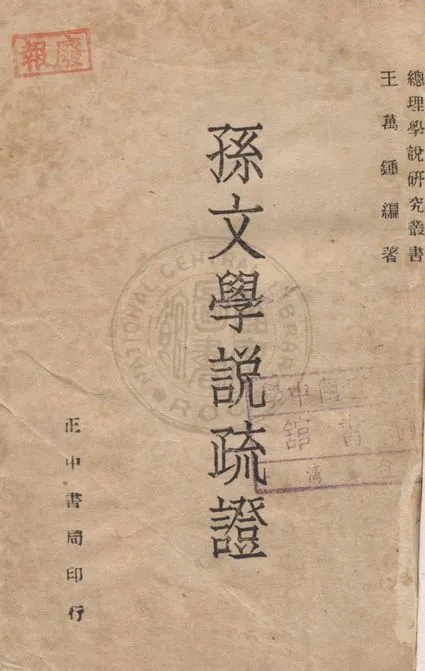 總理學說研究叢書
王萬鍾編著
孫文學說疏證
正中書局印行
報廢
NATIONAL CENTRAL LIBRARY
R.O.C.
中學
書館